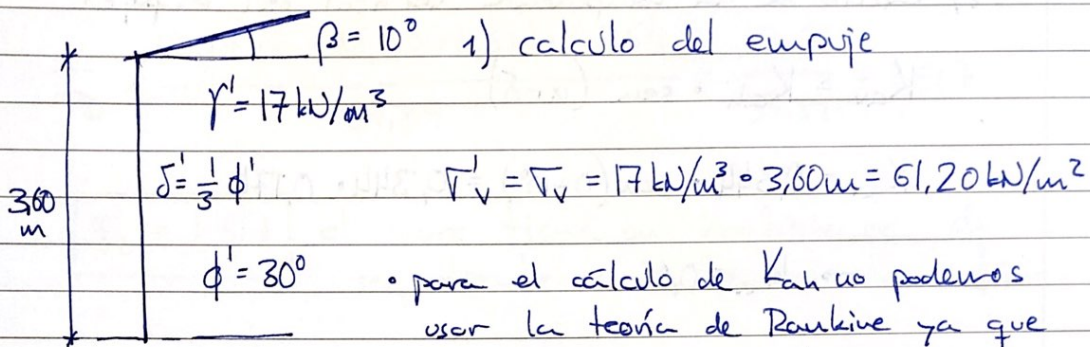 β = 10° 1) calculo del empuje
γ' = 17 kN/m³
δ' = 1/3 φ' σ'v = σv = 17 kN/m³ · 3,60m = 61,20 kN/m²
3,60
m
φ' = 30° • para el cálculo de Kah no podemos
usar la teoría de Rankine ya que